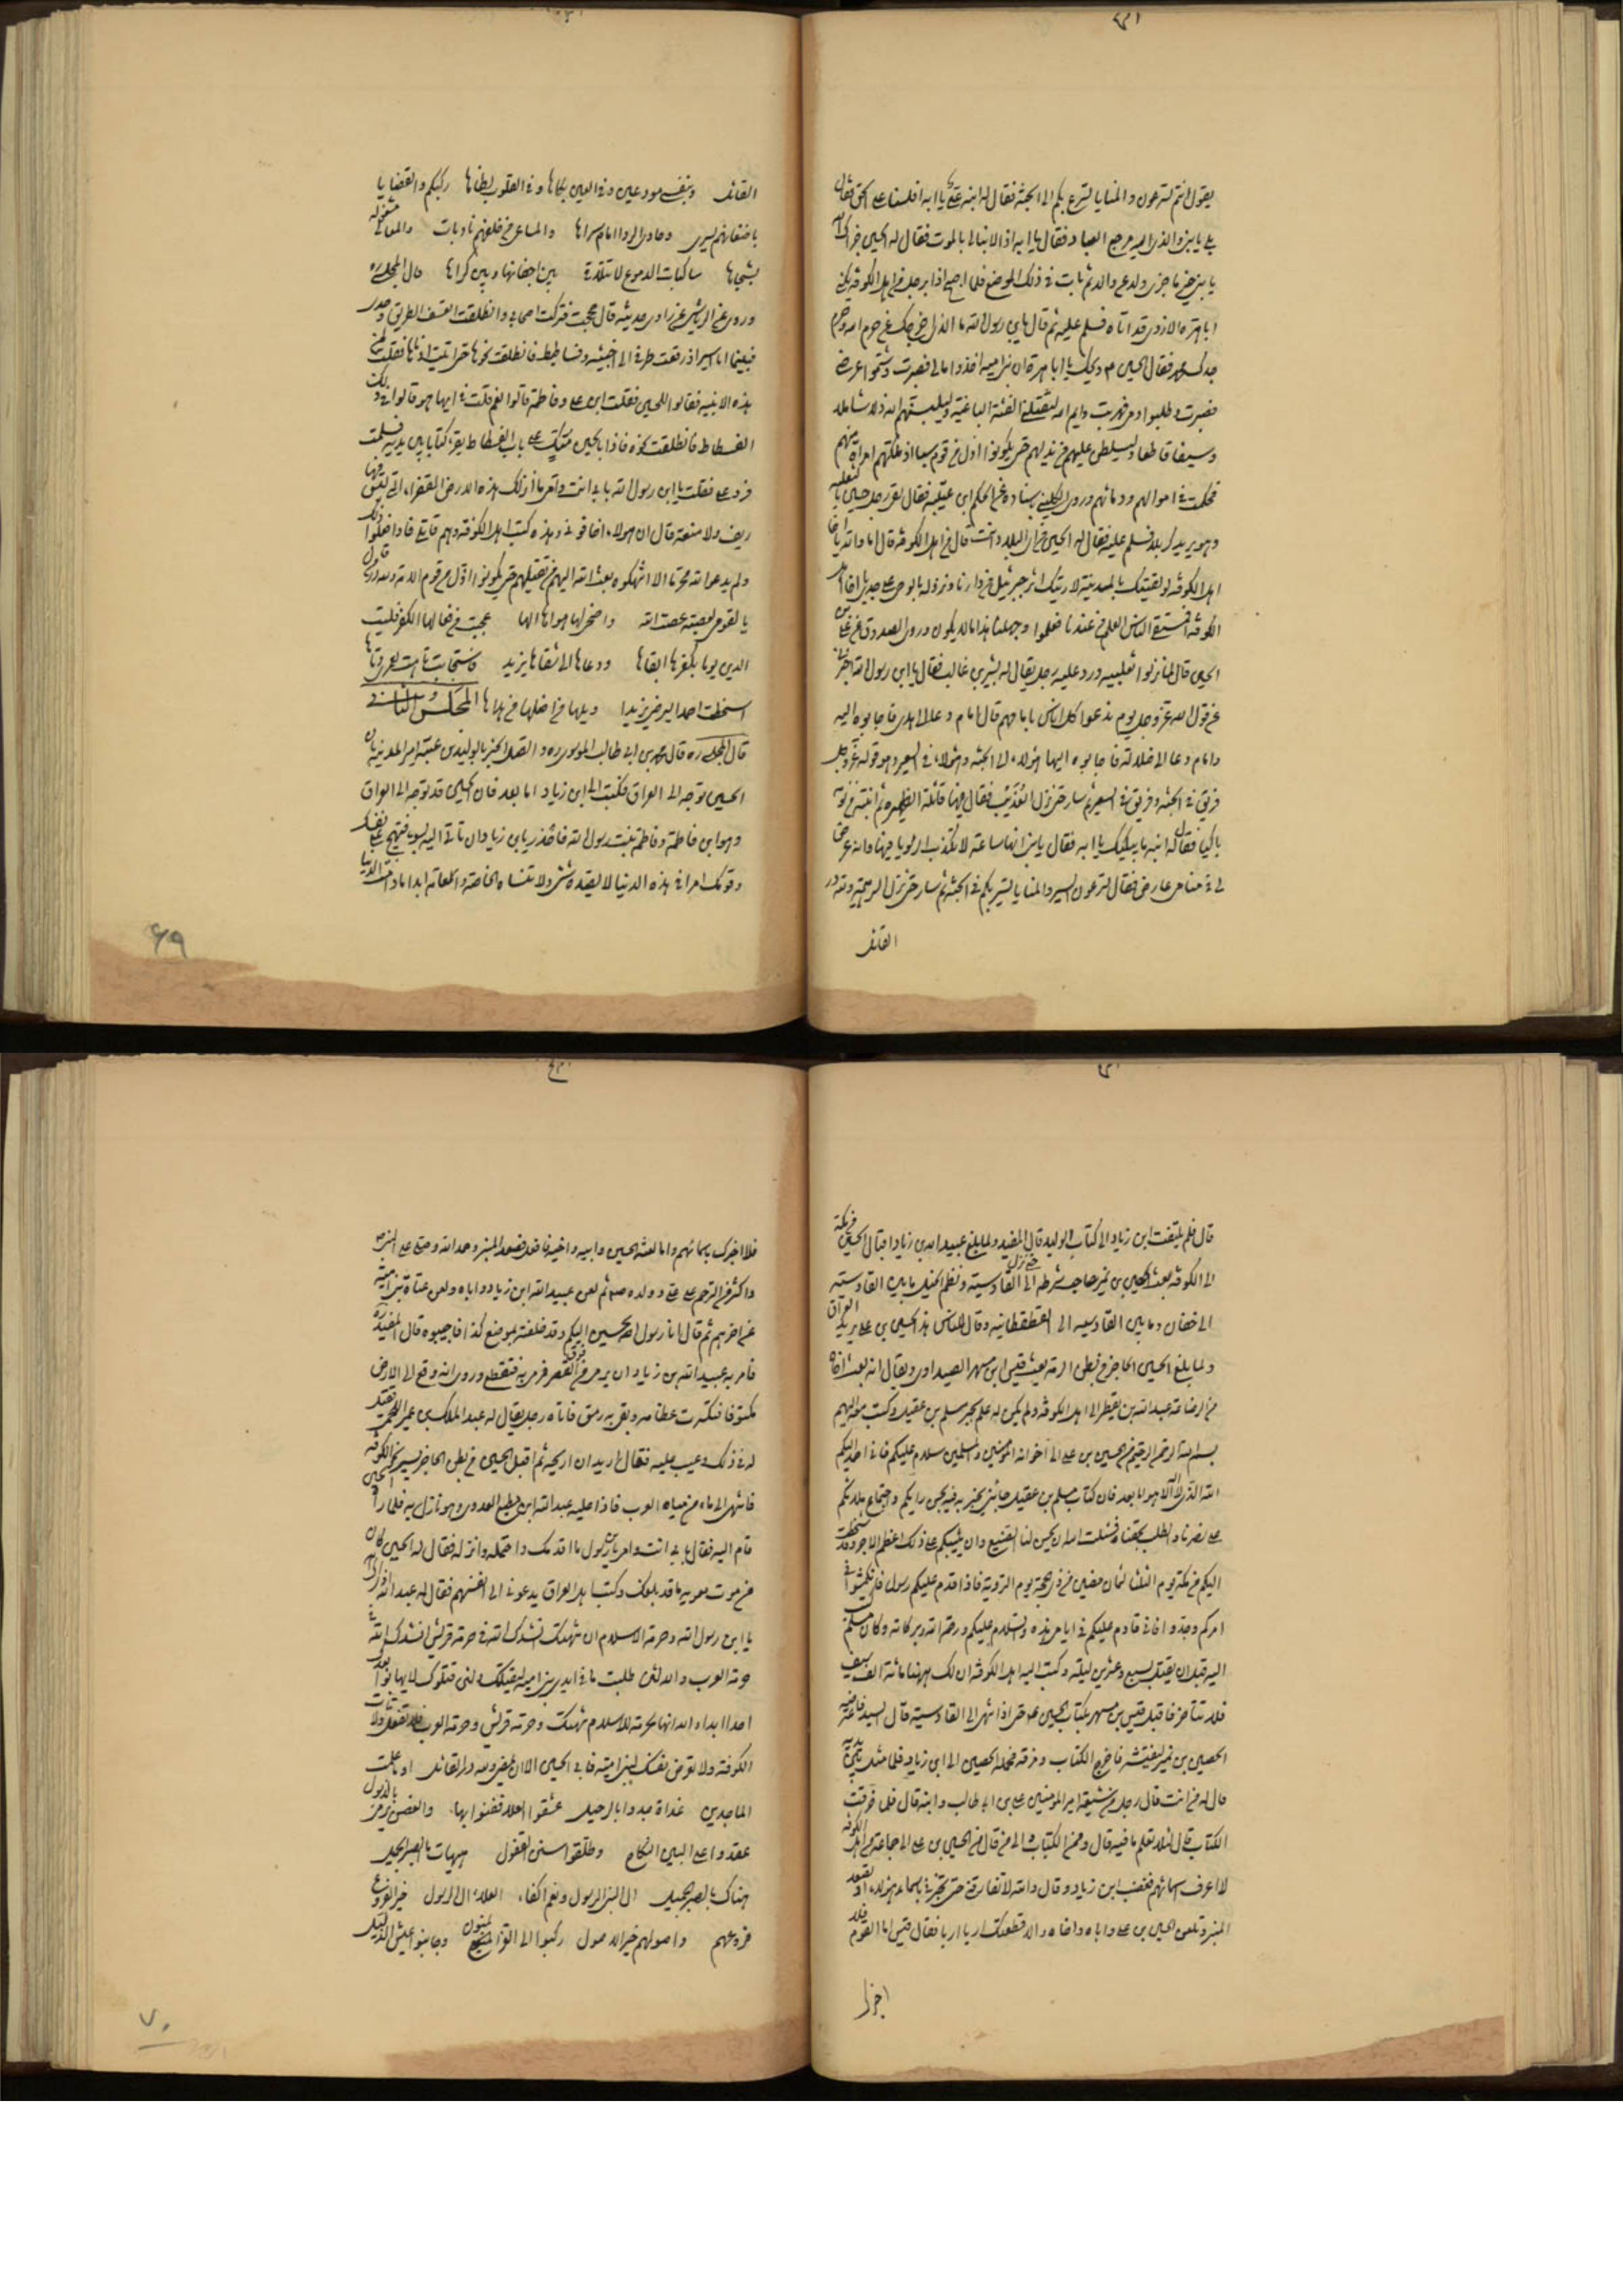 يقول انتم تسرعون و المنايا تسرع بكم الى الجنة فقال له ابنه علي يا ابه افلسنا على الحق فقال
بلى يا بني والذي اليه مرجع العباد فقال يا ابه اذا لا نبالي بالموت فقال له الحسين جزاك الله
يا بني خير ما جزى ولدا عن والد ثم بات في ذلك الموضع فلما اصبح اذا برجل من اهل الكوفة يكنى
ابا هرة الازدي قد اتاه فسلم عليه ثم قال يابن رسول الله ما الذي اخرجك عن حرم الله وحرم
جدك محمد فقال الحسين ع ويحك يا ابا هرة ان بني اميه اخذوا مالي فصبرت وشتموا عرضي
فصبرت و طلبوا دمي فهربت وايم الله لتقتلني الفئة الباغية وليلبسنهم الله ذلا شاملا
وسيفا قاطعا وليسلطن عليهم من يذلهم حتى يكونوا اذل من قوم سبا اذ ملكتهم امراة منهم
فحكمت في اموالهم و دمائهم وروى الكليني باسناده عن الحكم ابن عتيبه قال لقى رجل حسين بالثعلبيه
وهو يريد كربلا فسلم عليه فقال له الحسين من اى البلاد انت قال من اهل الكوفة قال اما والله يا اخا
اهل الكوفه لو لقيتك بالمدينة لاريتك اثر جبرئيل من دارنا ونزوله بالوحي على جدي يا اخا اهل
الكوفة افمستقى الناس العلم من عندنا فعلموا وجهلنا هذا ما لا يكون وروى الصدوق عن علي بن
الحسين قال لما نزلوا ثعلبيه ورد عليه رجل يقال له بشر بن غالب فقال يا ابن رسول الله اخبرني
عن قول الله عز وجل يوم ندعوا كل اناس بامامهم قال امام دعا الى هدى فاجابوه اليه
وامام دعا الى ضلالة فاجابوه اليها هؤلاء في الجنة وهؤلاء في السعير وهو قوله عز وجل
فريق في الجنة وفريق في السعير ثم سار حتى نزل العذيب فقال فيها قائلة الظهيرة ثم انتبه من نومه
باكيا فقال له ابنه ما يبكيك يا ابه فقال يا بني انها ساعة لا تكذب الرؤيا فيها وانه عرض
لي في منامي عارض فقال تسرعون السير والمنايا تسير بكم الى الجنة ثم سار حتى نزل الرهيمة ولله در
القائل
القائل وبنفسي مودعين وفي العين بكاها وفي القلوب لظاها ركبكم والقضايا
ورود عن الرياشي عن راوى حديثه قال حججت فتركت اصحابي وانطلقت اتعسف الطريق وحدي
فبينما انا اسير اذ رفعت طرفي الى اخبية وفساطيط فانطلقت نحوها حتى اتيت ادناها فقلت لمن
هذه الابنيه فقالوا للحسين فقلت ابن علي وفاطمة قالوا نعم قلت في ايها هو قالوا في ذلك
الفسطاط فانطلقت نحوه فاذا الحسين متكئ على باب الفسطاط يقرء كتابا بين يديه فسلمت
فرد علي فقلت يا ابن رسول الله بابي انت وامي ما انزلك في هذه الارض القفراء التي ليس فيها
ريف ولا منعة قال ان هؤلاء اخافوني وهذه كتب اهل الكوفة وهم قاتلي فاذا فعلوا ذلك
ولم يدعوا لله محرما الا انتهكوه بعث الله اليهم من يقتلهم حتى يكونوا اذل من قوم الامة ولله در من قال
المجلس الثاني
قال المجلسي ره قال محمد بن ابي طالب الموسوي ره و اتصل الخبر بالوليد بن عتبة امير المدينه بان
الحسين توجه الى العراق فكتب الى ابن زياد اما بعد فان الحسين قد توجه الى العراق
وهو ابن فاطمة وفاطمة بنت رسول الله فاحذر يابن زياد ان تاتي اليه بسوء فتهيج على نفسك
وقومك امرا في هذه الدنيا لا يصده شئ ولا تنساه الخاصة والعامة ابدا ما دامت الدنيا
۶۹
قال فلم يلتفت ابن زياد الى كتاب الوليد قال المفيد ولما بلغ عبيد الله بن زياد اقبال الحسين من مكة
الى الكوفه بعث الحصين بن نمير صاحب شرطه حتى نزل القادسيه ونظم الخيل ما بين القادسيه
الى خفان وما بين القادسيه الى القطقطانيه وقال للناس هذا الحسين بن علي يريد العراق
ولما بلغ الحسين الحاجز من بطن الرمة بعث قيس ابن مسهر الصيداوي ويقال انه بعث اخاه
من الرضاعة عبد الله بن يقطر الى اهل الكوفه ولم يكن له علم بخبر مسلم بن عقيل وكتب معه اليهم
بسم الله الرحمن الرحيم من الحسين بن علي الى اخوانه المؤمنين والمسلمين سلام عليكم فاني احمد اليكم
الله الذي لا اله الا هو اما بعد فان كتاب مسلم بن عقيل جائني يخبرني فيه بحسن رايكم واجتماع ملائكم
على نصرنا والطلب بحقنا فسئلت الله ان يحسن لنا الصنيع وان يثيبكم على ذلك اعظم الاجر وقد شخصت
اليكم من مكة يوم الثلثا لثمان مضين من ذي حجة يوم التروية فاذا قدم عليكم رسولي فانكمشوا في
امركم وجدوا فاني قادم عليكم في ايامي هذه والسلام عليكم ورحمة الله وبركاته وكان مسلم كتب
اليه قبل ان يقتل بسبع وعشرين ليلة وكتب اليه اهل الكوفة ان لك ههنا مائة الف سيف
فلا تتاخر فاقبل قيس بن مسهر بكتاب الحسين ع حتى اذا انتهى الى القادسية قال السيد فاعترضه
الحصين بن نمير ليفتشه فاخرج الكتاب ومزقه فحمله الحصين الى ابن زياد فلما مثل بين يديه
قال له من انت قال رجل من شيعة امير المؤمنين علي بن ابي طالب وابنه قال فلما خرقت
الكتاب قال لئلا تعلم ما فيه قال وممن الكتاب والى من قال من الحسين بن علي الى جماعة من اهل الكوفه
لا اعرف اسمائهم فغضب ابن زياد وقال والله لا تفارقني حتى تخبرني باسماء هؤلاء او تصعد
المنبر وتلعن الحسين بن علي واباه واخاه والا قطعتك اربا اربا فقال قيس اما القوم فلا
اخبرك
فلا اخبرك باسمائهم واما لعنة الحسين وابيه واخيه فافعل فصعد المنبر وحمد الله وصلى على النبي
واكثر من الترحم على علي وولده ثم لعن عبيد الله ابن زياد واباه ولعن عتاة بني امية
عن اخرهم ثم قال انا رسول الحسين اليكم وقد خلفته بموضع كذا فاجيبوه قال المفيد ره
فامر به عبيد الله بن زياد ان يرمى من فوق القصر فرمي به فتقطع وروى انه وقع الى الارض
مكتوفا فتكسرت عظامه وبقى به رمق فاتاه رجل يقال له عبد الملك بن عمير اللخمي فذبحه فقيل
له في ذلك وعيب عليه فقال اريد ان اريحه ثم اقبل الحسين من بطن الحاجز يسير نحو الكوفه
فانتهى الى ماء من مياه العرب فاذا عليه عبد الله ابن مطيع العدوي وهو نازل به فلما راى الحسين
قام اليه فقال بابي انت وامي يابن رسول الله ما اقدمك واحتمله وانزله فقال له الحسين كان
من موت معويه ما قد بلغك وكتب اهل العراق يدعوني الى انفسهم فقال له عبد الله اذكرك الله
يا ابن رسول الله وحرمة الاسلام ان تنهتك انشدك الله في حرمة قريش انشدك الله في
حرمة العرب والله لئن طلبت ما في ايدي بني اميه ليقتلنك ولئن قتلوك لا يهابوا بعدك
احدا ابدا والله انها لحرمة الاسلام تنهتك وحرمة قريش وحرمة العرب فلا تفعل ولا تات
الكوفة ولا تعرض نفسك لبني امية فابى الحسين الا ان يمضي ولله در القائل او ما علمت
الماجدين غداة جدوا بالرحيل عشقوا العلا ففنوا بها والغصن يرمى بالذبول
عقدوا على البين النكاح وطلقوا سنن القفول هيهات بالصبر الجميل
فروعهم واصولهم خير الاصول ركبوا الى العز المنون وجانبوا عيش الذليل
۷۰